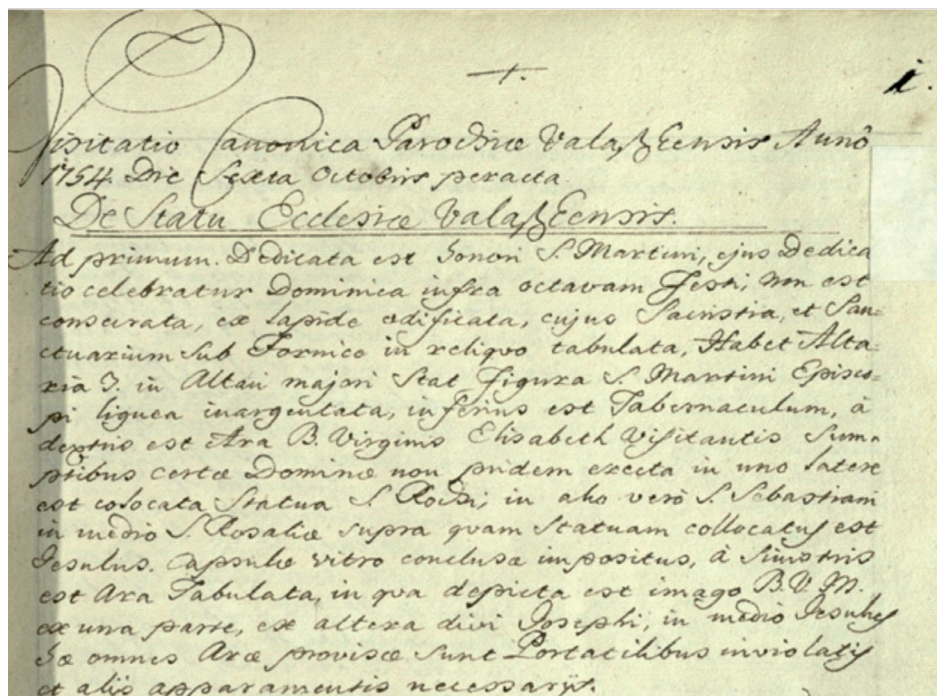 +.
1.
Visitatio Canonica Parochiæ Valaßkensis Annô
1754 Die Sexta Octobris peracta
De Statu Ecclesiæ Valaßkensis.
Ad primum. Dedicata est honori S. Martini, ejus Dedica
tio celebratur Dominica infra octavam Festi, non est
consecrata, ex lapide ædificata, cujus Sacristia, et San=
ctuarium sub Fornice in reliquo tabulata, Habet Alta=
ria 3. in Altari majori Stat Figura S. Martini Episco=
pi lignea inargentata, inferius est Tabernaculum, à
dextris est Ara B. Virginis Elisabeth Visitantis Sum=
ptibus certæ Dominæ non pridem erecta in uno latere
est colocata Statua S. Rochi; in alio verò S. Sebastiani
in medio S. Rosaliæ supra quam Statuam collocatus est
Jesulus. Capsulæ vitro conclusæ impositus, à Sinistris
est Ara Tabulata, in qua depicta est imago B.V.M.
ex una parte, ex altera divi Josephi, in medio Jesulus
hæ omnes Aræ provisæ sunt Portatilibus inviolatis
et alijs apparamentis necessarijs.